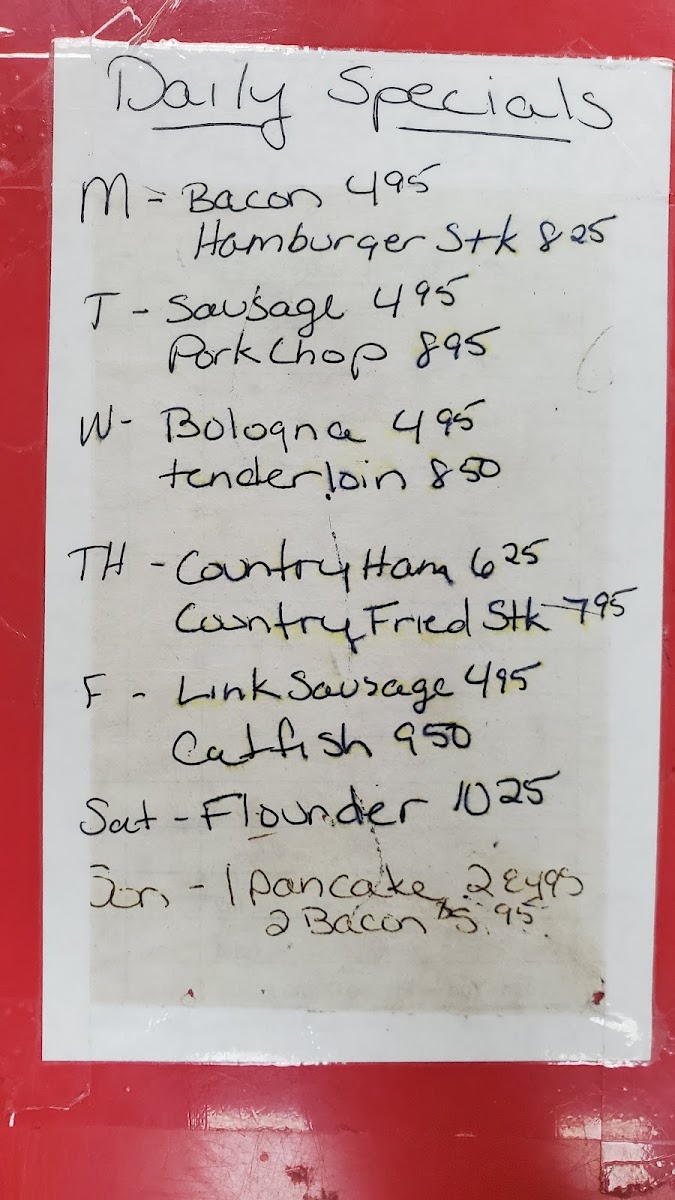 Daily Specials
M - Bacon 495
Hamburger Stk 825
T - Sausage 495
Pork Chop 895
W - Bologna 495
tenderloin 850
TH - Country Ham 625
Country Fried Stk 795
F - Link Sausage 495
Catfish 950
Sat - Flounder 1025
Sun - 1 pancake, 2 Eggs
2 Bacon $5.95